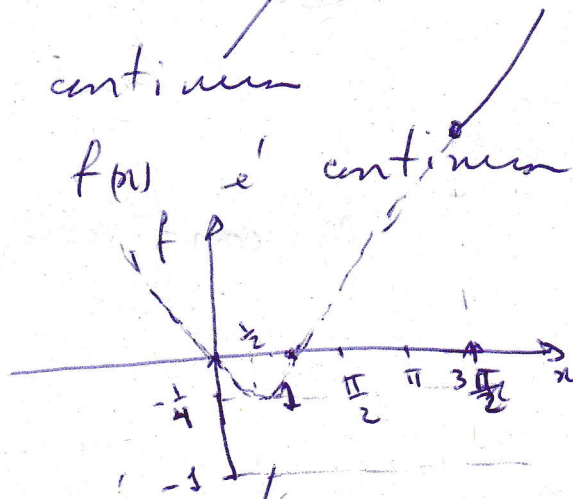 continua
f(x) é continua
f
1/2
-1/4 1 π/2 π 3π/2 x
-1